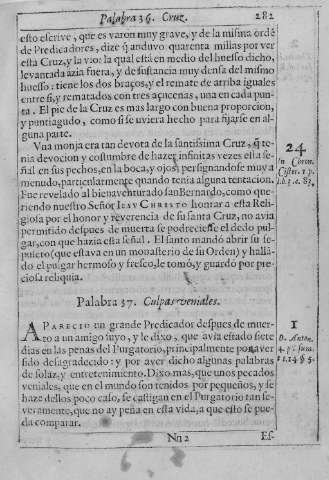 Palabra 36. Cruz. 282
esto escrive, que es varon muy grave, y de la misma ordẽ
de Predicadores, dize q̃ anduvo quarenta millas por ver
esta Cruz, y la vio: la qual está en medio del huesso dicho,
levantada azia fuera, y de sustancia muy densa del mismo
huesso: tiene los dos braços, y el remate de arriba iguales
entre si, y rematados con tres açucenas, una en cada pun-
ta. El pie de la Cruz es mas largo con buena proporcion,
y puntiagudo, como si se uviera hecho para fijarse en al-
guna parte.
Una monja era tan devota de la santissima Cruz, q̃ te-
nia devocion y costumbre de hazer infinitas vezes esta se-
ñal en sus pechos, en la boca, y ojos, persignandose muy a
menudo, particularmente quando tenia alguna tentacion.
Fue revelado al bienaventurado san Bernardo, como que-
riendo nuestro Señor IESV CHRISTO honrar a esta Reli-
giosa por el honor y reverencia de su santa Cruz, no avia
permitido despues de muerta se podreciesse el dedo pul-
gar, con que hazia esta señal. El santo mandó abrir su se-
pulcro (que estava en un monasterio de su Orden) y hallá-
do el pulgar hermoso y fresco, le tomó, y guardó por pre-
ciosa reliquia.
24
In Coron.
Cister. 1 p.
l. b. 3. c. 83.
Palabra 37. Culpas veniales.
APARECIO un grande Predicador despues de muer-
to a un amigo suyo, y le dixo, que avia estado siete
dias en las penas del Purgatorio, principalmente por aver
sido desagradecido: y por aver dicho algunas palabras
de solaz, y entretenimiento. Dixo mas, que unos pecados
veniales, que en el mundo son tenidos por pequeños, y se
haze dellos poco caso, se castigan en el Purgatorio tan se-
veramente, que no ay peña en esta vida, a que esto se pue-
da comparar.
1
D. Anton.
4. p. sum.
t. 14 § 5.
Nn 2 Es-